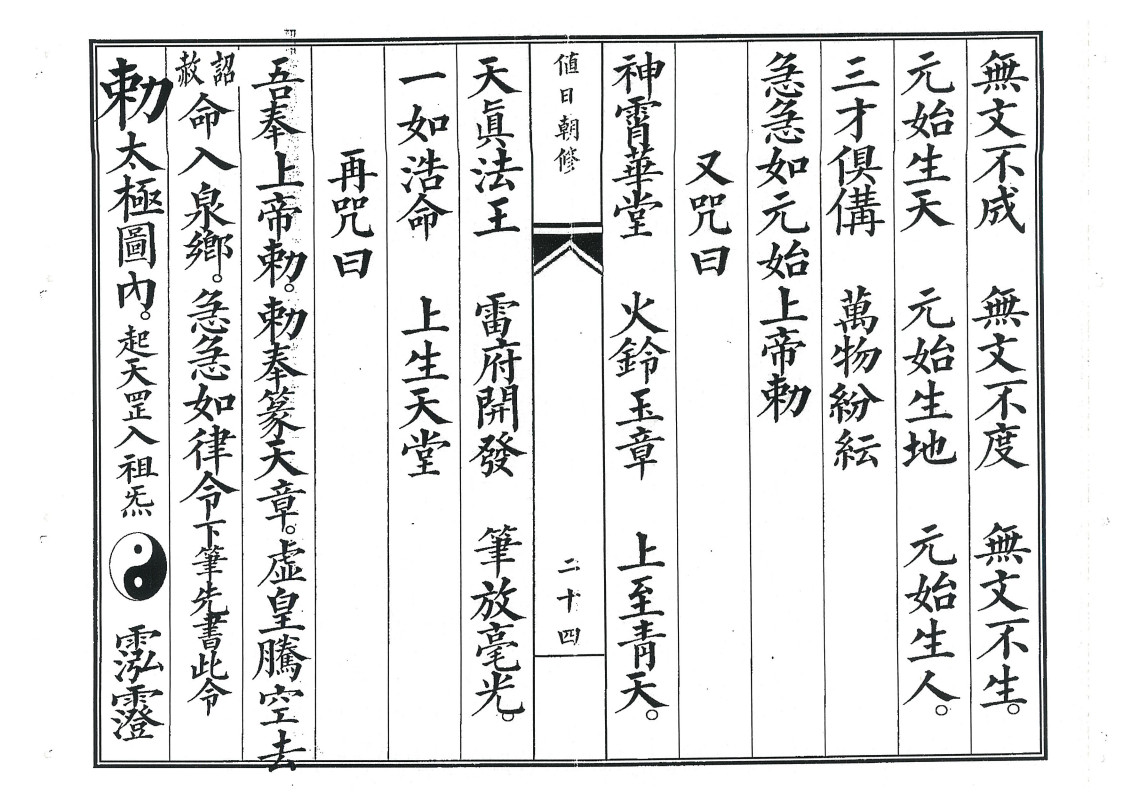 無文不成　無文不度　無文不生。
元始生天　元始生地　元始生人。
三才俱備　萬物紛紜
急急如元始上帝勅
又咒曰
神霄華堂　火鈴玉章　上至青天。
値日朝修　二十四
天眞法王　雷府開發　筆放毫光。
一如浩命　上生天堂
再咒曰
吾奉上帝勅。勅奉篆天章。虛皇騰空去
詔赦命入泉鄉。急急如律令下筆先書此令
勅太極圖內。起天罡入祖炁